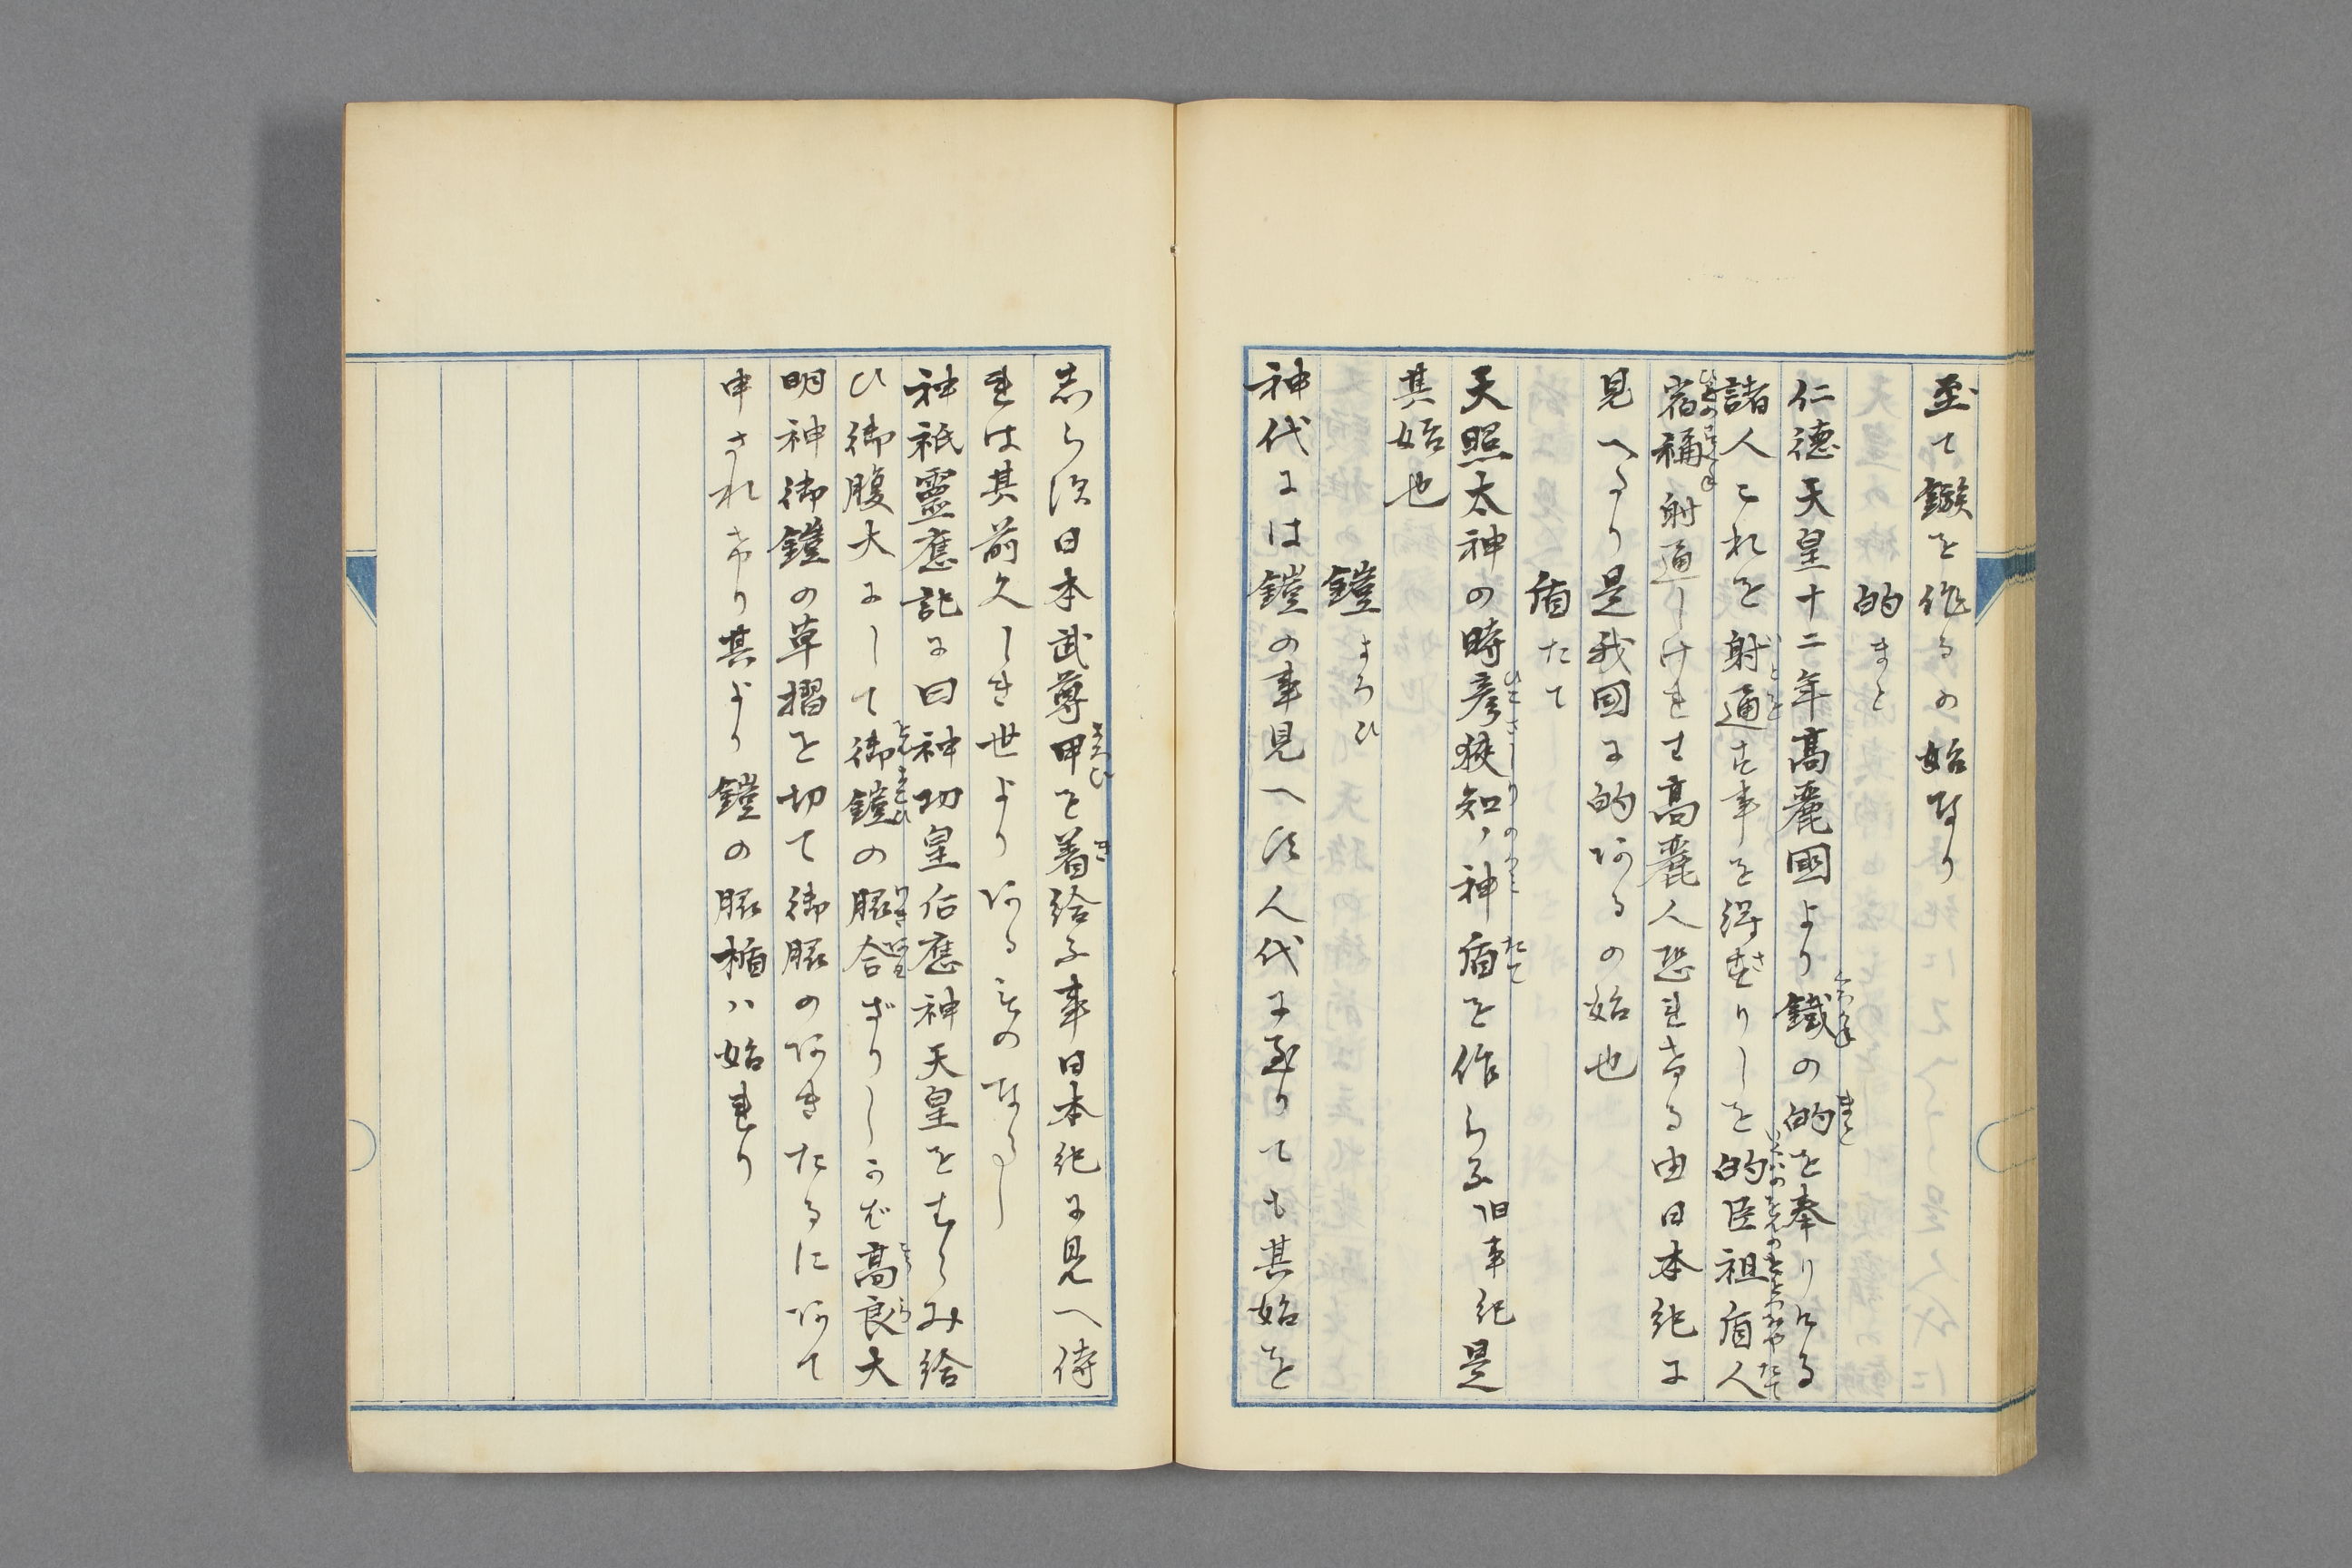 至て鏃を作るの始なり
的まと
仁徳天皇十二年高麗國より鐵の的を奉りける
諸人これを射通す事を得ざりしを的臣祖盾人
宿禰射通しければ高麗人恐れける由日本紀に
見へたり是我国に的あるの始也
盾たて
天照太神の時彦狭知ノ神盾を作らる旧事紀是
其始也
鎧よろひ
神代には鎧の事見へず人代に至りても其始を
志らず日本武尊甲を着給ふ事日本紀に見へ侍
れは其前久しき世よりあるものなるべし
神祇靈應記に曰神功皇后應神天皇をはらみ給
ひ御腹大にして御鎧の脇合ざりしかば高良大
明神御鎧の草摺を切て御脇のあきたるにあて
申されけり其より鎧の脇楯ハ始れり